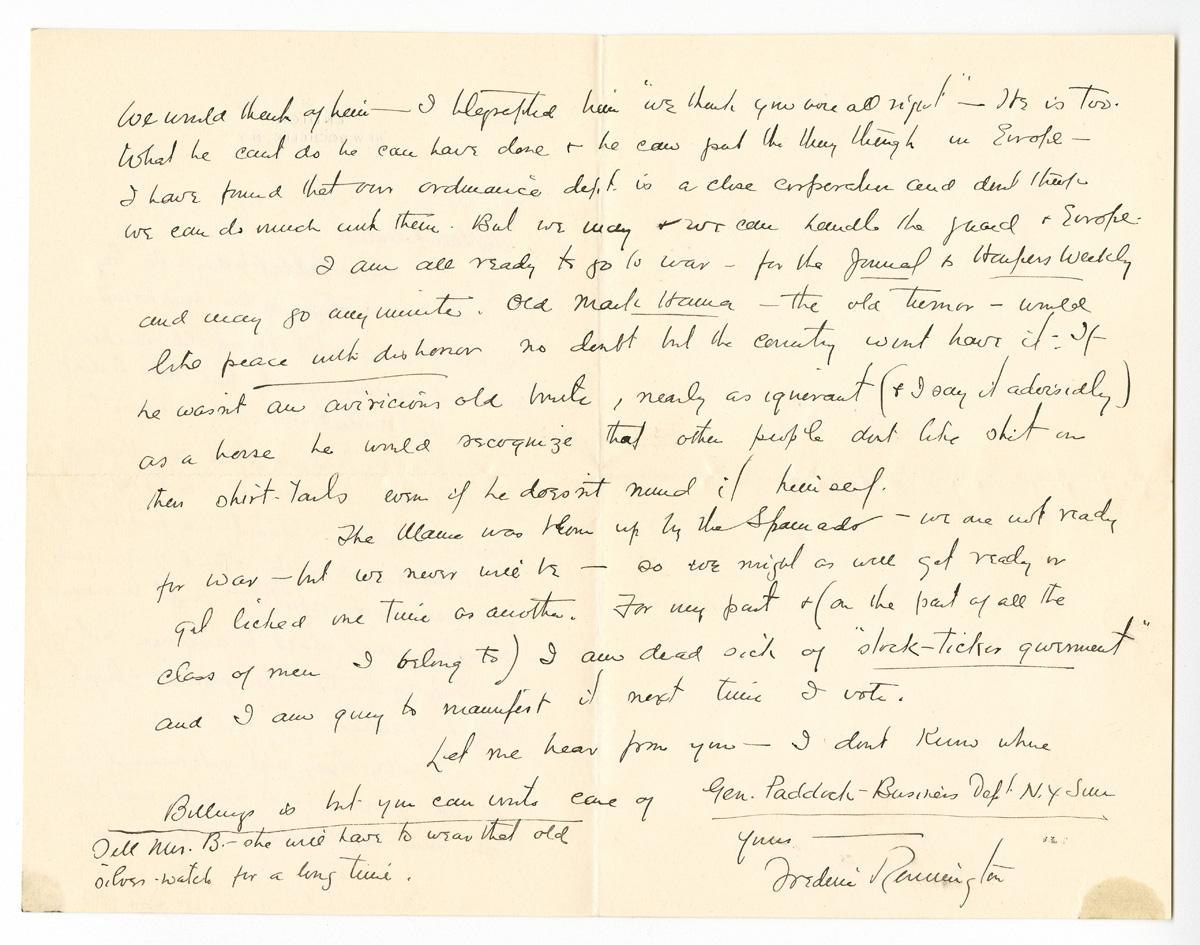 We would think of him — I telegraphed him "we think you were all right" — He is too.
What he cant do he can have done + he can put the thing through in Europe —
I have found that our ordinance dept. is a close corporation and dont think
we can do much with them. But we may + we can handle the guard + Europe.
I am all ready to go to war — for the Journal & Harpers Weekly
and may go any minute. Old Mark Hanna — the old — would
like peace with dishonor no doubt but the country wont have it — If
he wasn't an aviricious old brute, nearly as ignerant (+ I say it advisidly)
as a horse he would recognize that other people dont like shit on
their shirt-tails even if he doesn't mind it himself.
The Maine was blown up by the Spaniads — we are not ready
for war — but we never will be — so we might as well get ready or
get licked one time as another. For my part + (on the part of all the
class of men I belong to) I am dead sick of "stock-ticker government"
and I am going to manifest it next time I vote.
Let me hear from you — I dont Know where
Billings is but you can write care of Gen. Paddock - Business Dept N.Y Sun
Tell Mrs. B. — she will have to wear that old
silver-watch for a long time.
Yours —
Frederic Remington